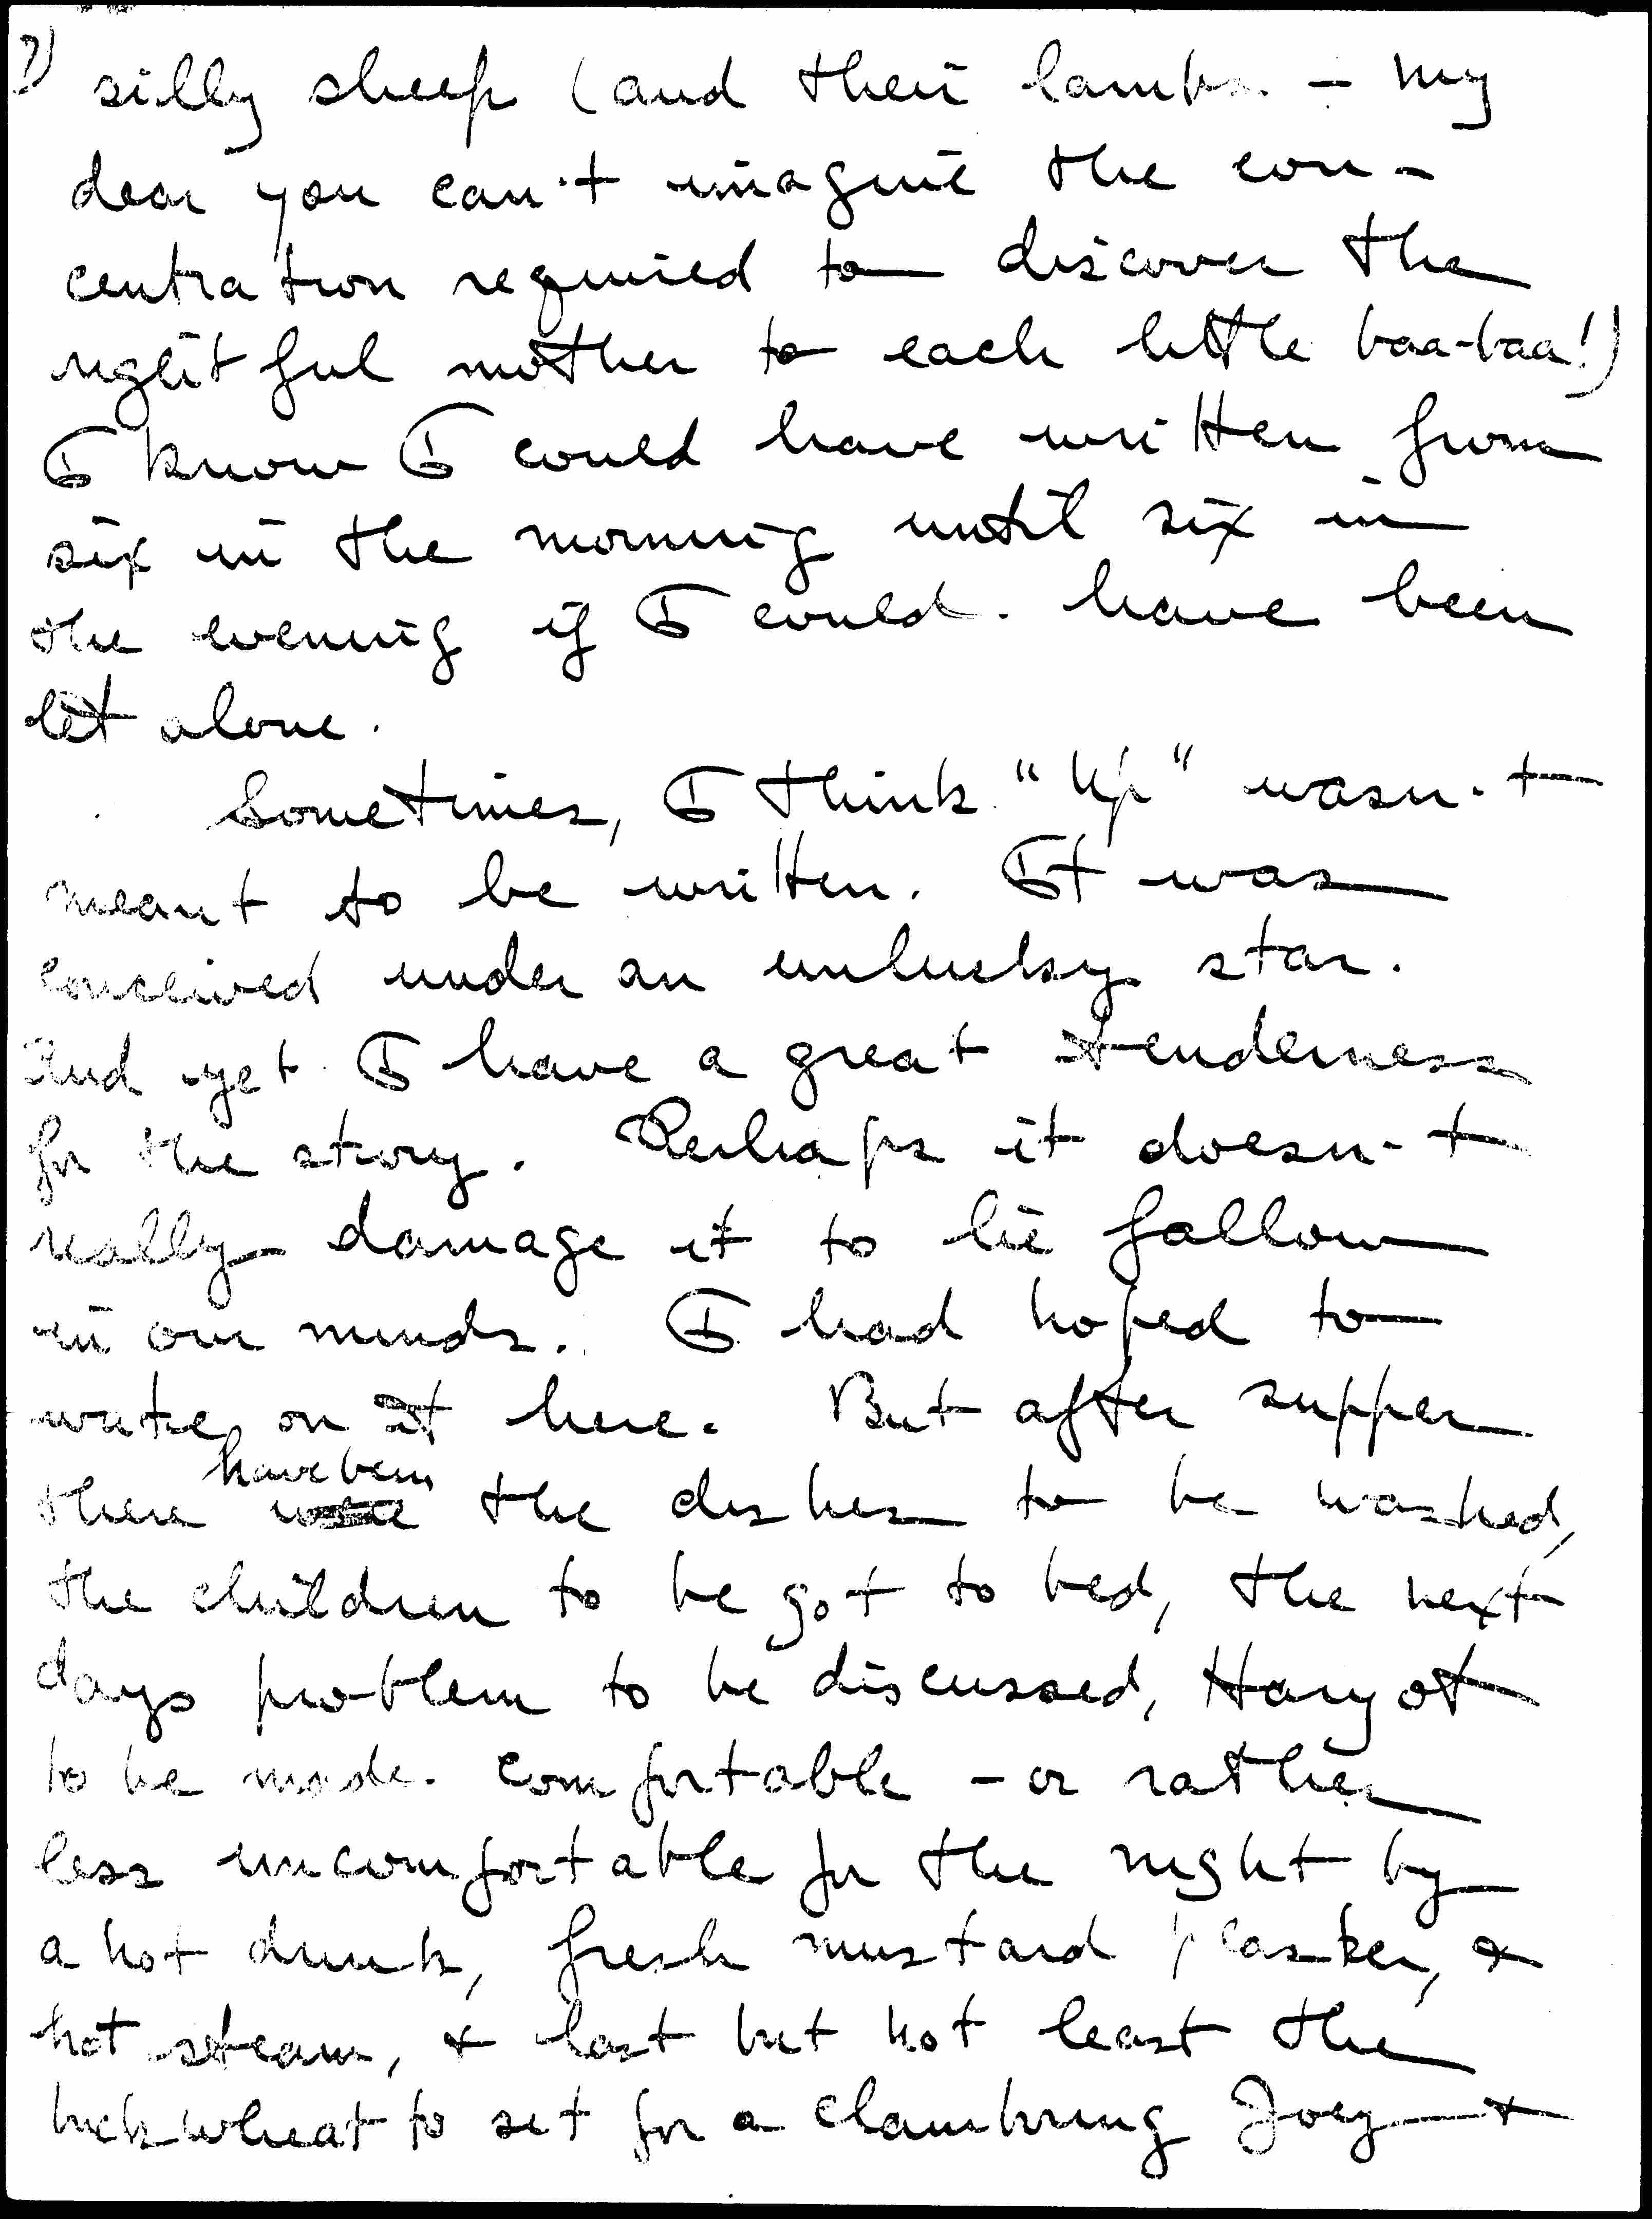 7) silly sheep (and their lambs – my
dear you can't imagine the con-
centration required to discover the
rightful mother to each little baa-baa!)
I know I could have written from
six in the morning until six in
the evening if I could have been
let alone.
Sometimes, I think "Up" wasn't
meant to be written. It was
conceived under an unlucky star.
And yet I have a great tenderness
for the story. Perhaps it doesn't
really damage it to lie fallow
in our minds. I had hoped to
write on it here. But after supper
have been
there were the dishes to be washed,
the children to be got to bed, the next
days problem to be discussed, Haryot
to be made comfortable – or rather
less uncomfortable for the night by
a hot drink, fresh mustard plaster, &
hot steam, & last but not least the
buckwheat to set for a clambring Joey &